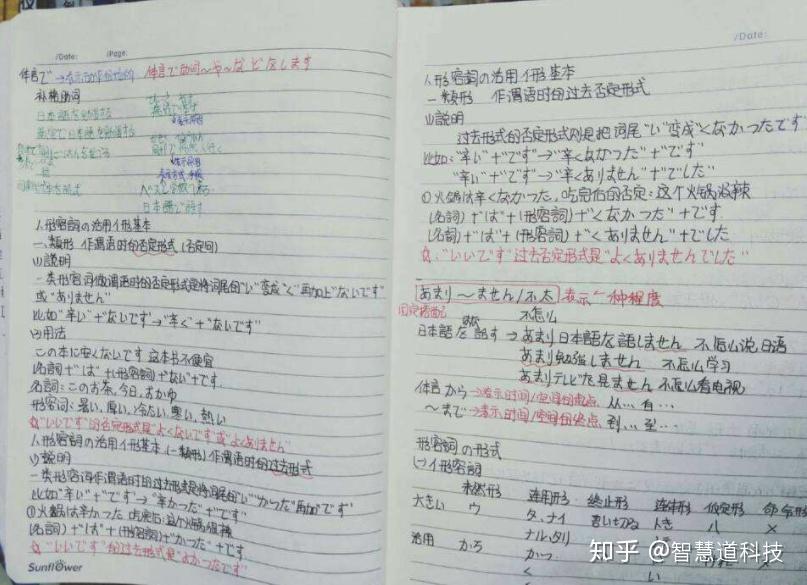 /Date: /Page:
体言で 体言で 助詞～や～など をします
补格助词
日本語を勉強する
英語で日本語を勉強する
ペンで
日本語で話す
人形容詞の活用イ形基本
一、類形 作谓语时的否定形式 (否定句)
(1)説明
一类形容词做谓语时的否定形式是将词尾的"い"变成"く"再加上"ないです"
或"ありません"
比如"辛い"+"ないです"→"辛く"+"ないです"
(2)用法
この本は安くないです 这本书不便宜
(名詞)+"は"+(形容詞)+"ない"+です
名詞：このお茶、今日、おかゆ
形容词：暑い、厚い、冷たい、悪い、熱い
"いいです"的否定形式是"よくないです"或"よくありません"
人形容詞の活用イ形基本 (一類形) 作谓语时的过去形式
(1)説明
一类形容词作谓语时的过去形式是将词尾的"い""かった"再加"です"
比如"辛い"+"です"→"辛かった"+"です"
①火鍋は辛かった 吃完后:这个火锅很辣
(名詞)+"は"+(形容詞)+"かった"+です
"いいです"的过去形式是"よかったです"
Sunflower
/Date:
人形容詞の活用イ形基本
一類形 作谓语时的过去否定形式
(1)説明
过去形式的否定形式则是把词尾"い"变成"くなかったです"
比如："辛い"+"です"→"辛くなかった"+"です"
"辛い"+"です"→"辛くありません"+"でした"
①火鍋は辛くなかった，吃完后的否定：这个火锅没辣
(名詞)+"は"+(形容詞)+"くなかった"+です
(名詞)+"は"+(形容詞)+"くありません"+でした
"いいです"过去否定形式是"よくありませんでした"
あまり～ません/不太 表示一种程度
固定搭配 不怎么
日本語を話す → あまり日本語を話しません 不怎么说日语
あまり勉強しません 不怎么学习
あまりテレビを見ません 不怎么看电视
体言から→表示时间/空间的起点 从…有…
～まで→表示时间/空间的终点 到…至…
形容詞の形式
(一)イ形容詞
未然形 連用形 終止形 連体形 仮定形 命令形
大きい ウ タ、ナイ 言い切る トき バ ×
ナル、タリ
活用 かろ かっ
く い
知乎 @智慧道科技